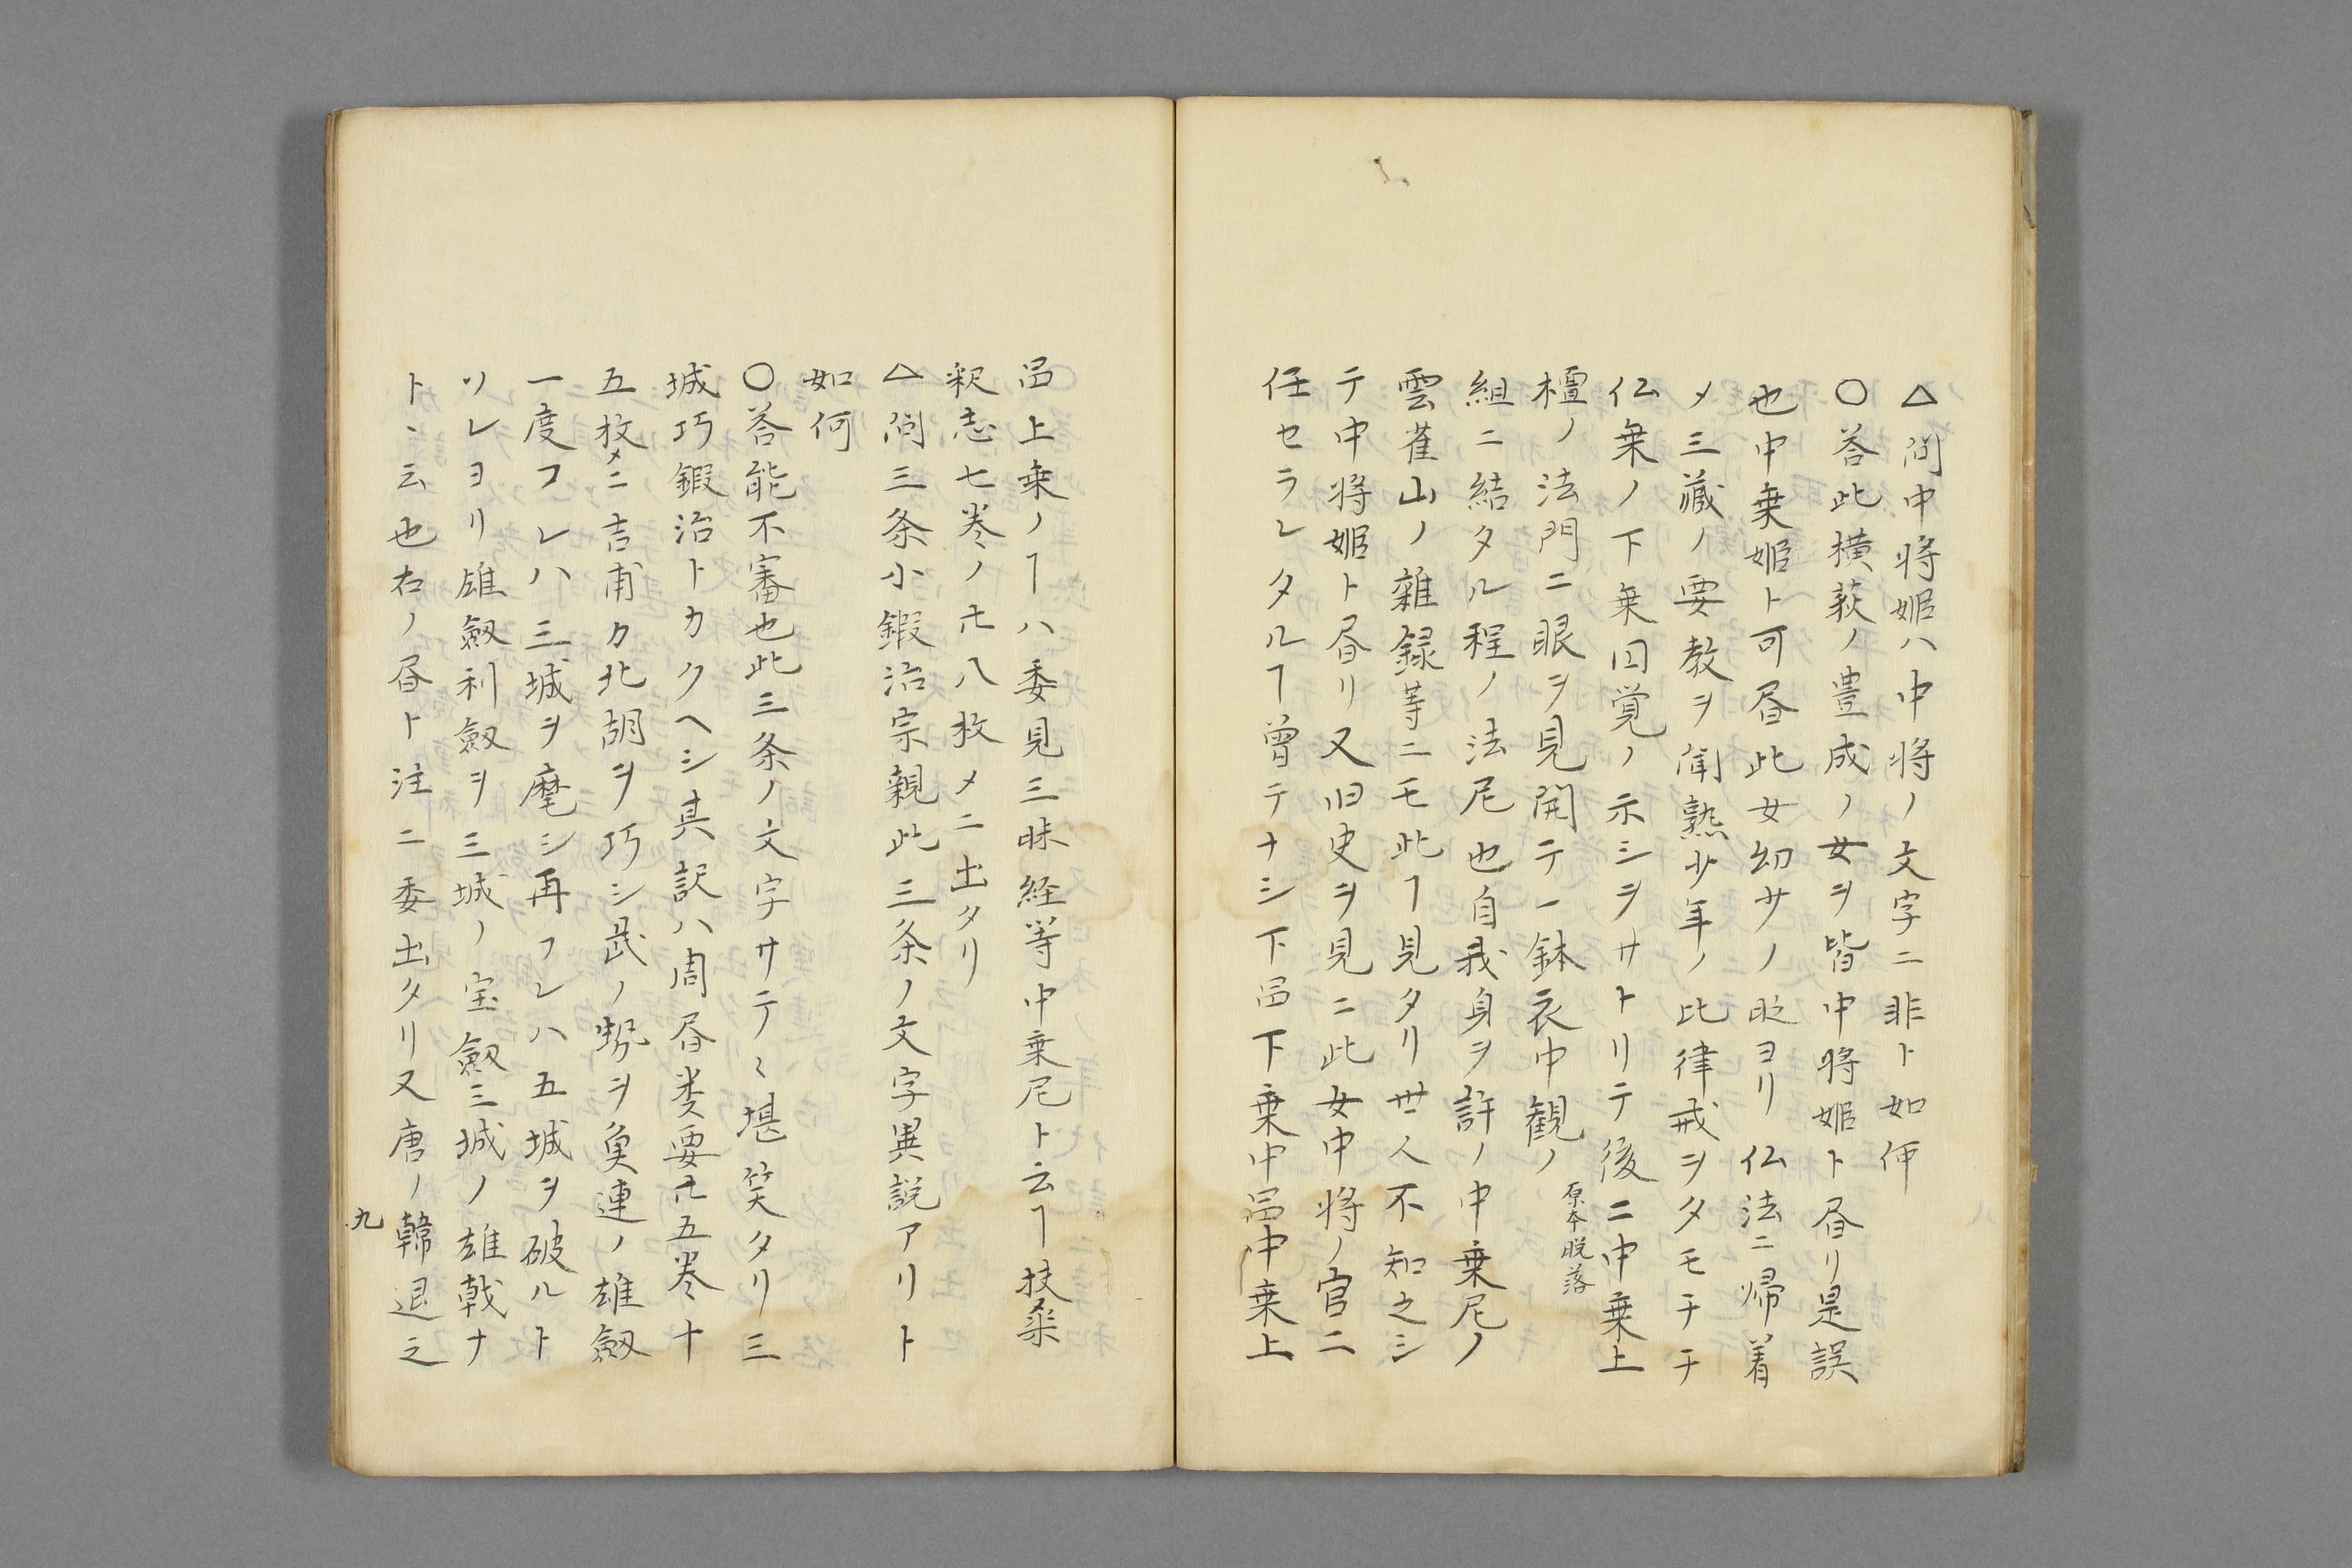 △问中将姫ハ中将ノ文字ニ非ト如何
○答此横萩ノ豊成ノ女ヲ皆中将姫ト昏リ是誤
也中乗姫ト可昏此女幼サノ时ヨリ仏法ニ帰着
メ三蔵ノ要教ヲ聞熟少年ノ比律戒ヲタモチテ
仏乗ノ下乗囙覚ノ示シヲサトリテ後ニ中乗上
檀ノ法門ニ眼ヲ見開テ一鉢衣中観ノ 原本脱落
組ニ結タル程ノ法尼也自我身ヲ許ノ中乗尼ノ
雲雀山ノ雑録等ニモ此ヿ見タリ世人不知之シ
テ中将姫ト昏リ又旧史ヲ見ニ此女中将ノ官ニ
任セラレタルヿ曽テナシ下品下乗中品中乗上
品上乗ノヿハ委見三昧経等中乗尼ト云ヿ扶桒
釈志七巻ノ卅八枚メニ出タリ
△问三条小鍛治宗親此三条ノ文字異説アリト
如何
○答能不審也此三条ノ文字サテ〻堪笑タリ三
城巧鍛治トカクヘシ其訳ハ周昏类要卅五巻十
五枚メニ吉甫カ北胡ヲ巧シ武ノ甥ヲ奐連ノ雄劔
一度フレハ三城ヲ麾シ再フレハ五城ヲ破ルト
ソレヨリ雄劔利劔ヲ三城ノ宝劔三城ノ雄戟ナ
トヽ云也右ノ昏ト注ニ委出タリ又唐ノ韓退之
九